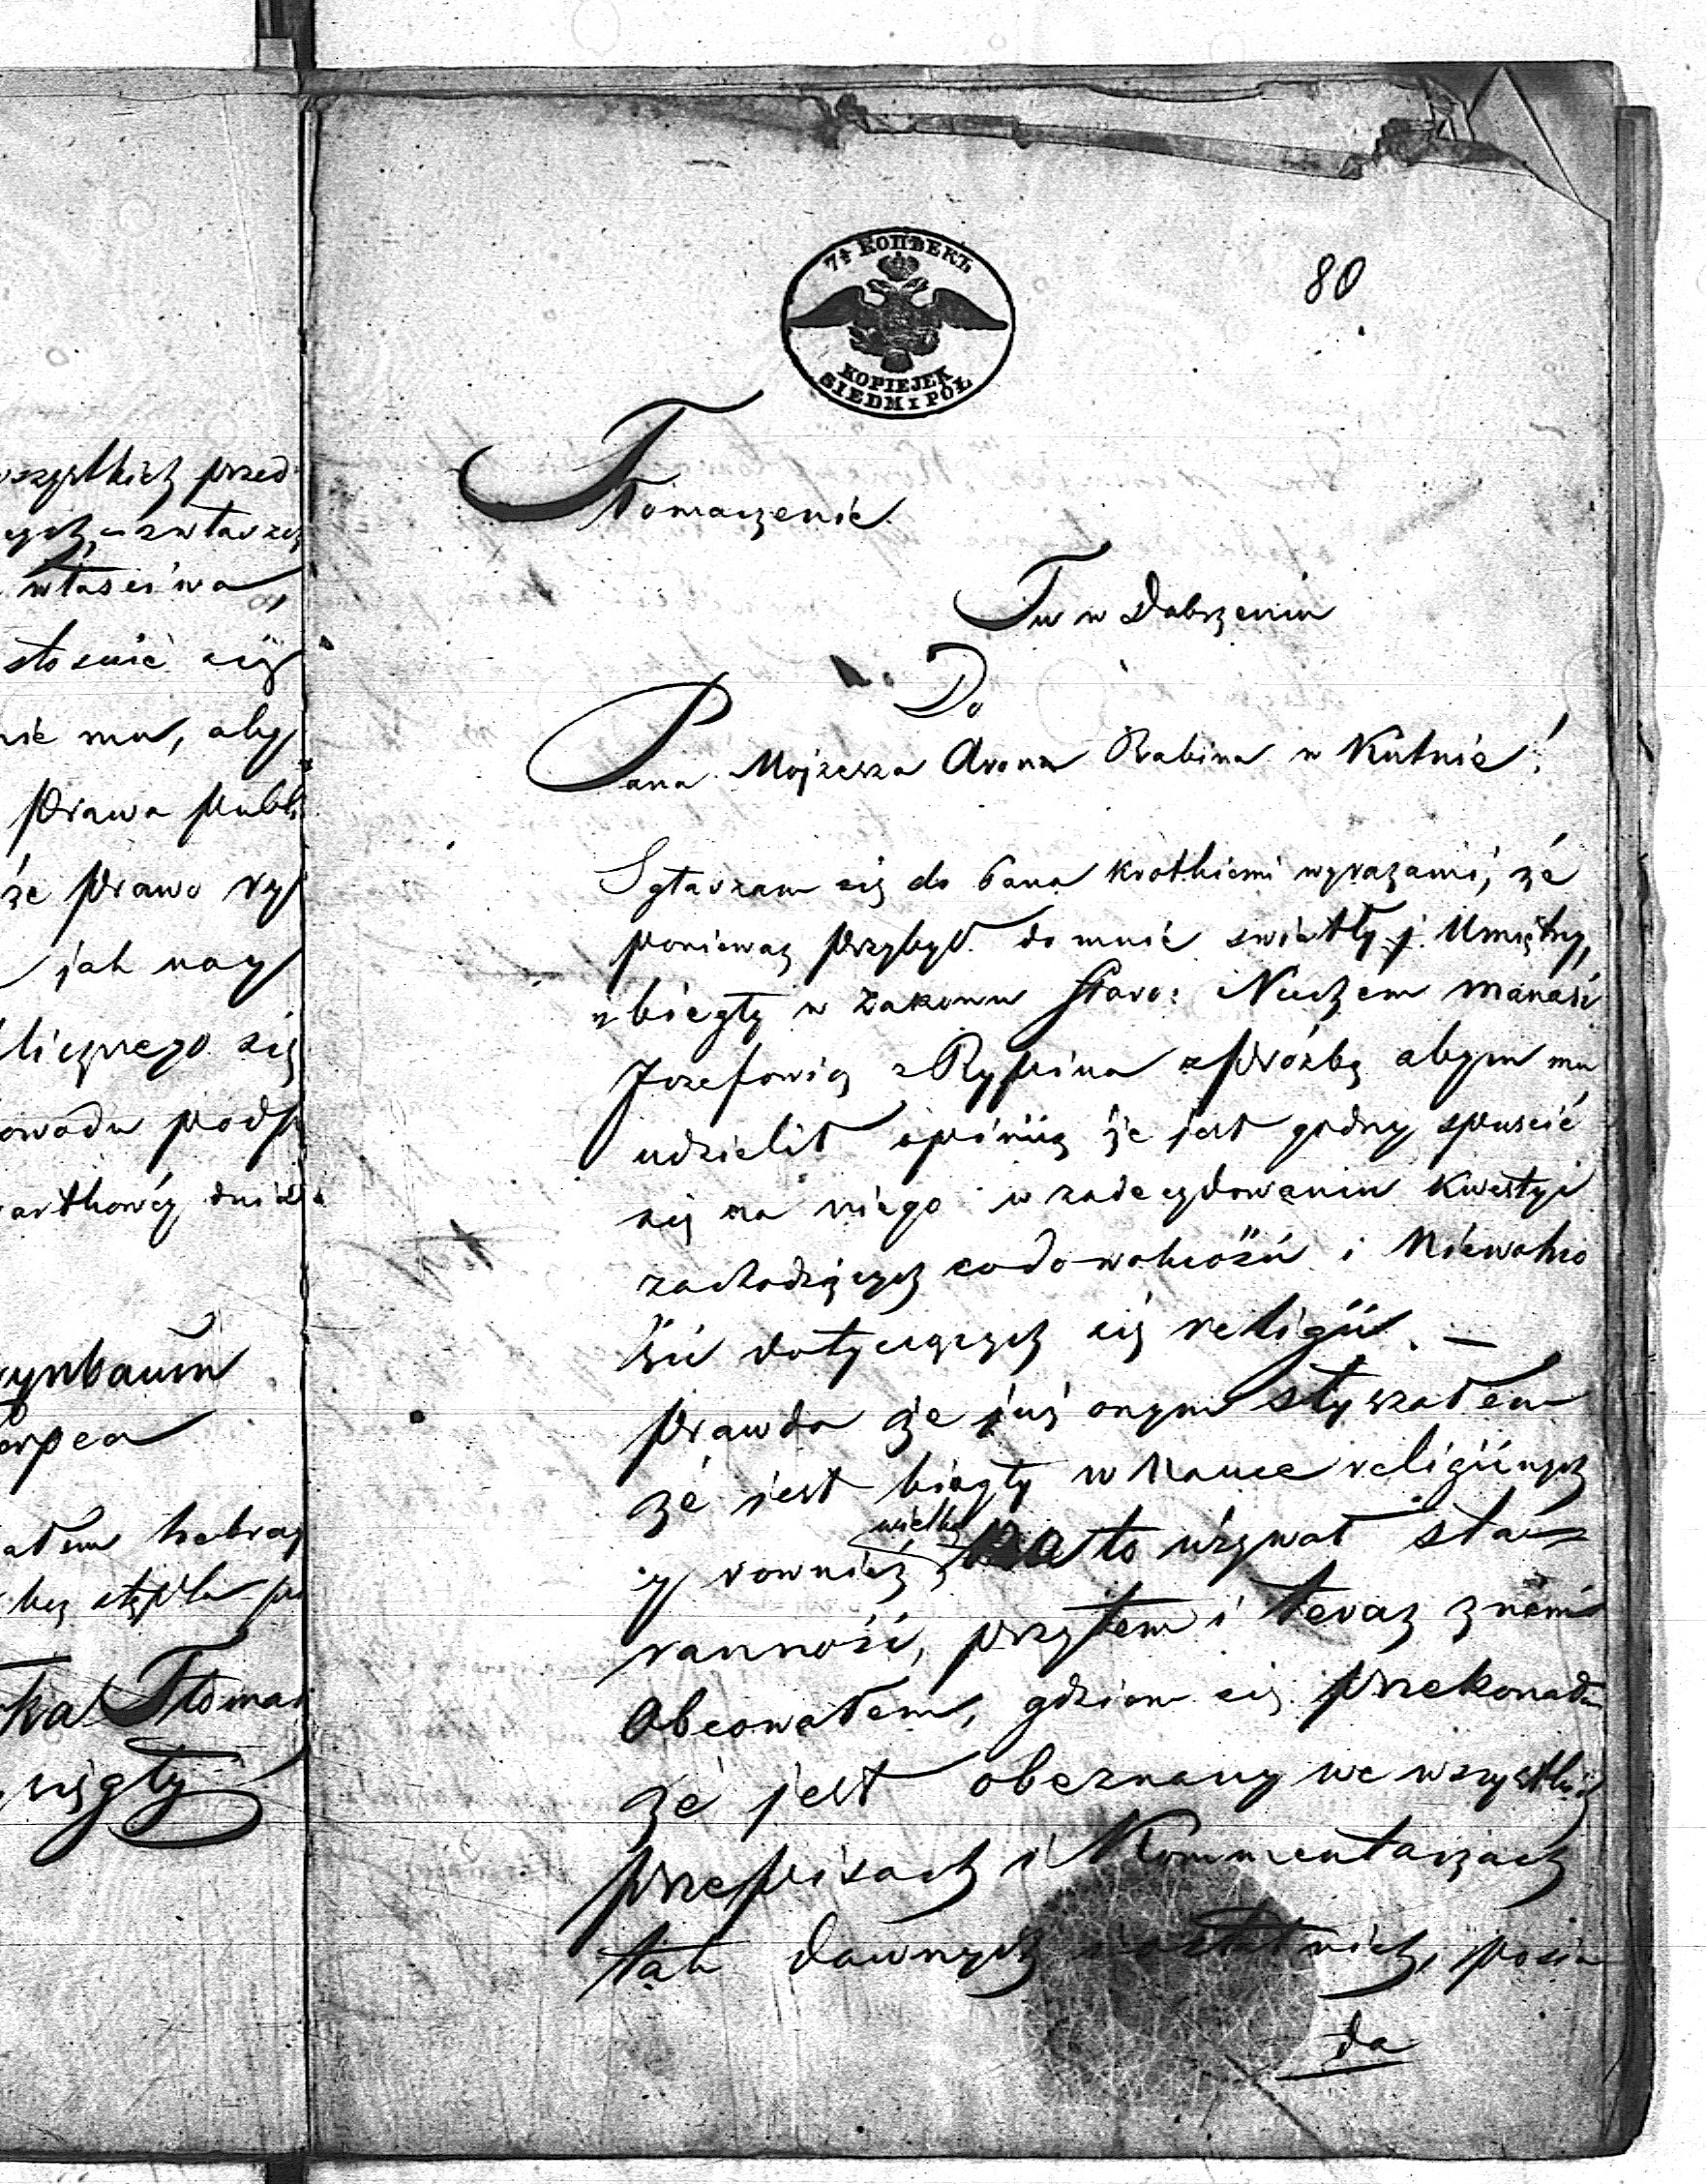 wszystkich przed
własciwa,
stosuie się
nie mu, aby
prawa publi
że prawo ry
jak nay
licznego się
owodu podp
arkowéy dnia
ynbaum
atem hebray
bez stępla
Tłoma
sięgły
7½ КОПѢЕКЪ
KOPIEJEK
SIEDM I PÓŁ
80
Tłomaczenie
Tu w Dobrzeniu
Do
Pana Mojżesza Arona Rabina w Kutnie!
Zgłaszam się do Pana krotkiemi wyrazami, że
poniewaz przybył do mnie swiatły j Umiętny,
y biegły w zakonu Staro: Nuchem Manasi
Jozefowicz z Rypina z prózbą abym mu
udzielił opiniią że jest godny spuscić
się na niego w zadecydowaniu kwestyi
zachodzących co do wolności i Niewolno
ści dotyczących się religii. —
prawda że już o nym słyszałem
że jest biegły w Nauce religiinych
y rownież wielką na to używał sta=
ranność, przytem i teraz z niém
Obcowałem, gdziem się przekonałem
że jest obeznany we wszystkich
przepisach i Kommentarzach
tak dawnych i ostatnich, posia
da